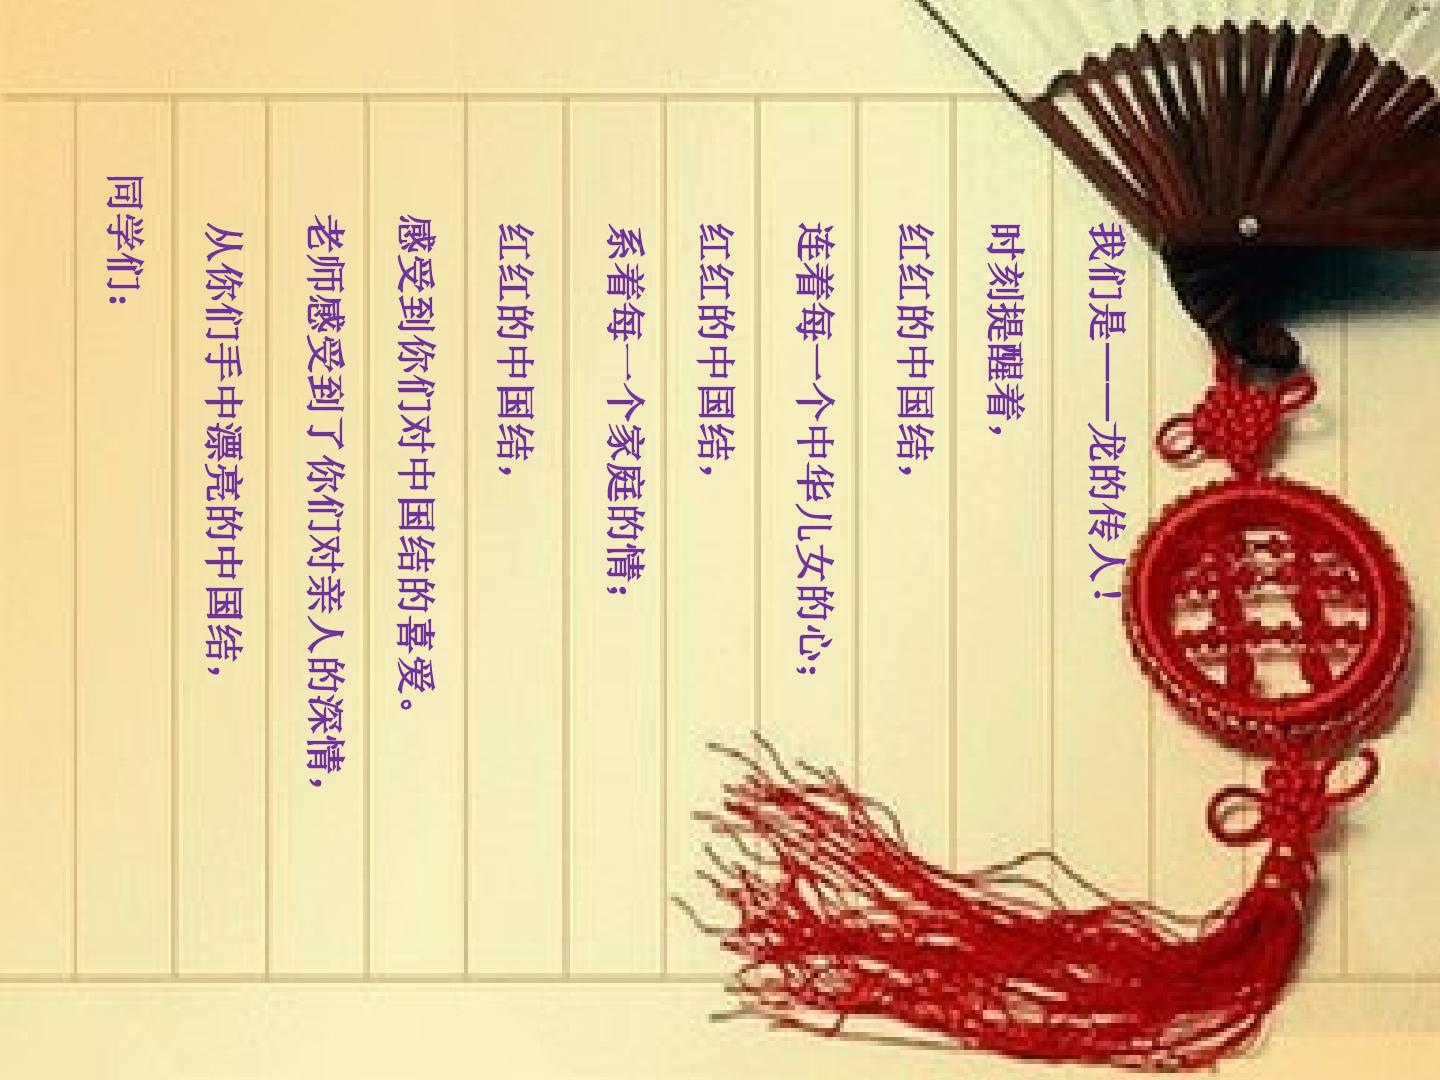 同学们：
从你们手中漂亮的中国结，
老师感受到了你们对亲人的深情，
感受到你们对中国结的喜爱。
红红的中国结，
系着每一个家庭的情；
红红的中国结，
连着每一个中华儿女的心；
红红的中国结，
时刻提醒着，
我们是——龙的传人！